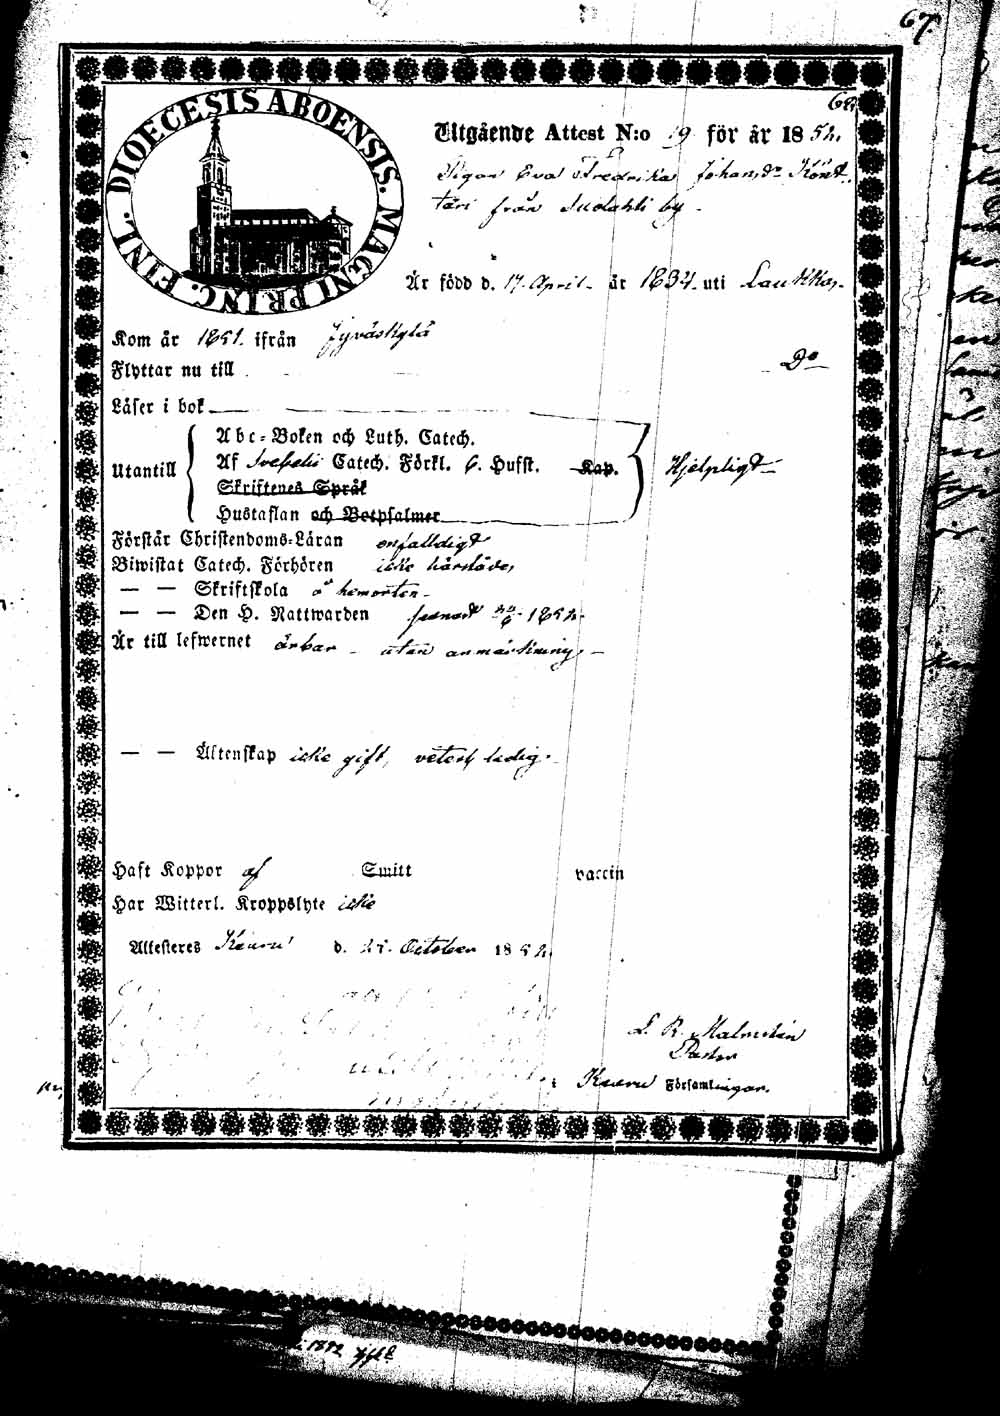 67.
68.
DIOECESIS ABOENSIS. MAGNI PRINC. FINL.
Utgående Attest N:o 19 för år 1852.
Pigan Eva Fredrika Johansdr Könt-
täri från by -
Är född d. 17 April - år 1834 - uti Laukka, -
Kom år 1851. ifrån Jyväskylä
Flyttar nu till - Do -
Läser i bok
Utantill
Abc-Boken och Luth. Catech.
Af Svebelii Catech. Förkl. 6. Hufst. Kap.
Hjelpligt -
Skriftenes Språk
Hustaflan och Botpsalmer
Förstår Christendoms-Läran enfaldigt
Biwistat Catech. Förhören icke härstädes
— — Skriftskola å hemorten -
— — Den H. Nattwarden senast 1852.
Är till lefwernet ärbar - utan anmärkning, -
— — Äktenskap icke gift, veterl. ledig. -
Haft Koppor af Smitt vaccin
Har Witterl. Kroppslyte icke
Attesteres Keuru d. October 1852.
L. R. Malmstén
Pastor
i Keuru Församlingar.